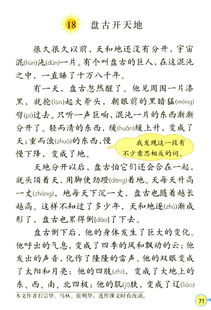 18 盘古开天地
很久很久以前，天和地还没有分开，宇宙
混(hùn)沌(dùn)一片。有个叫盘古的巨人，在这混沌
之中，一直睡了十万八千年。
有一天，盘古忽然醒了。他见周围一片漆
黑，就抡(lūn)起大斧头，朝眼前的黑暗猛(měng)
劈(pī)过去。只听一声巨响，混沌一片的东西渐渐
分开了。轻而清的东西，缓(huǎn)缓上升，变成了
天；重而浊(zhuó)的东西，慢
慢下降，变成了地。
我发现这一段有
不少意思相反的词。
天地分开以后，盘古怕它们还会合在一起，
就头顶着天，用脚使劲蹬(dēng)着地。天每天升高
一丈(zhàng)，地每天下沉一丈，盘古也随着越长
越高。这样不知过了多少年，天和地逐(zhú)渐成
形了，盘古也累得倒(dǎo)了下去。
盘古倒下后，他的身体发生了巨大的变化。
他呼出的气息，变成了四季的风和飘动的云；他
发出的声音，化作了隆隆的雷声。他的双眼变成
了太阳和月亮；他的四肢(zhī)，变成了大地上的
东、西、南、北四极；他的肌(jī)肤，变成了辽(liáo)
本文作者石宗华、马林、张明华，选作课文时有改动。
71